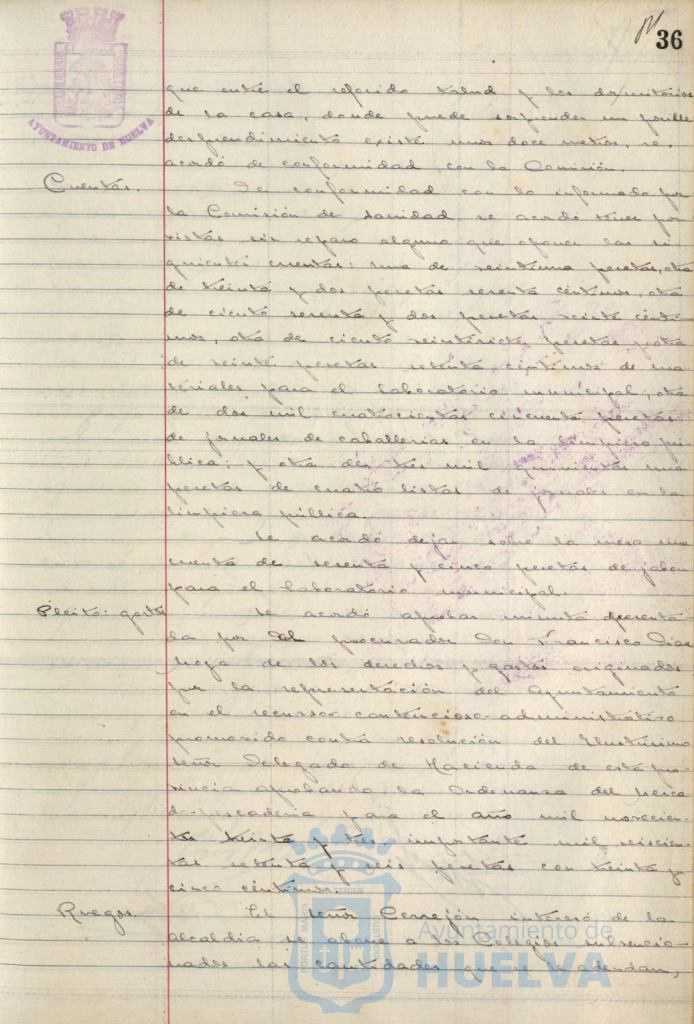 36
AYUNTAMIENTO DE HUELVA
que entre el referido talud y los dormitorios
de la casa, donde puede sorprender un posible
desprendimiento existe unos doce metros, se
acordó de conformidad con la Comisión.
Cuentas.
De conformidad con lo informado por
la Comisión de Sanidad, se acordó tener por
vistas sin reparo alguno que oponer las si
guientes cuentas: una de veintiuna pesetas, otra
de treinta y dos pesetas sesenta céntimos, otra
de ciento sesenta y dos pesetas veinte cénti
mos, otra de ciento veintisiete pesetas y otra
de veinte pesetas setenta céntimos de ma
teriales para el laboratorio municipal; otra
de dos mil cuatrocientas cincuenta pesetas
de jornales de caballerías en la limpieza pú
blica; y otra de tres mil quinientas una
pesetas de cuatro listas de jornales en la
limpieza pública.
Se acordó dejar sobre la mesa una
cuenta de sesenta y cinco pesetas de jabón
para el laboratorio municipal.
Pleito: gastos
Se acordó aprobar minuta presenta
da por del procurador Don Francisco Díaz
de los derechos y gastos originados
por la representación del Ayuntamiento
en el recurso contencioso-administrativo
promovido contra resolución del Ilustrísimo
señor Delegado de Hacienda de esta pro
vincia aprobando la Ordenanza del
pescadería para el año mil novecien
tos treinta y tres importante mil seiscien
tas setenta y seis pesetas con treinta y
cinco céntimos.
Ruegos.
El señor Cerrejón interesó de la
alcaldía se abone a los Colegios subvencio
nados las cantidades que se le adeudan,
Ayuntamiento de
HUELVA